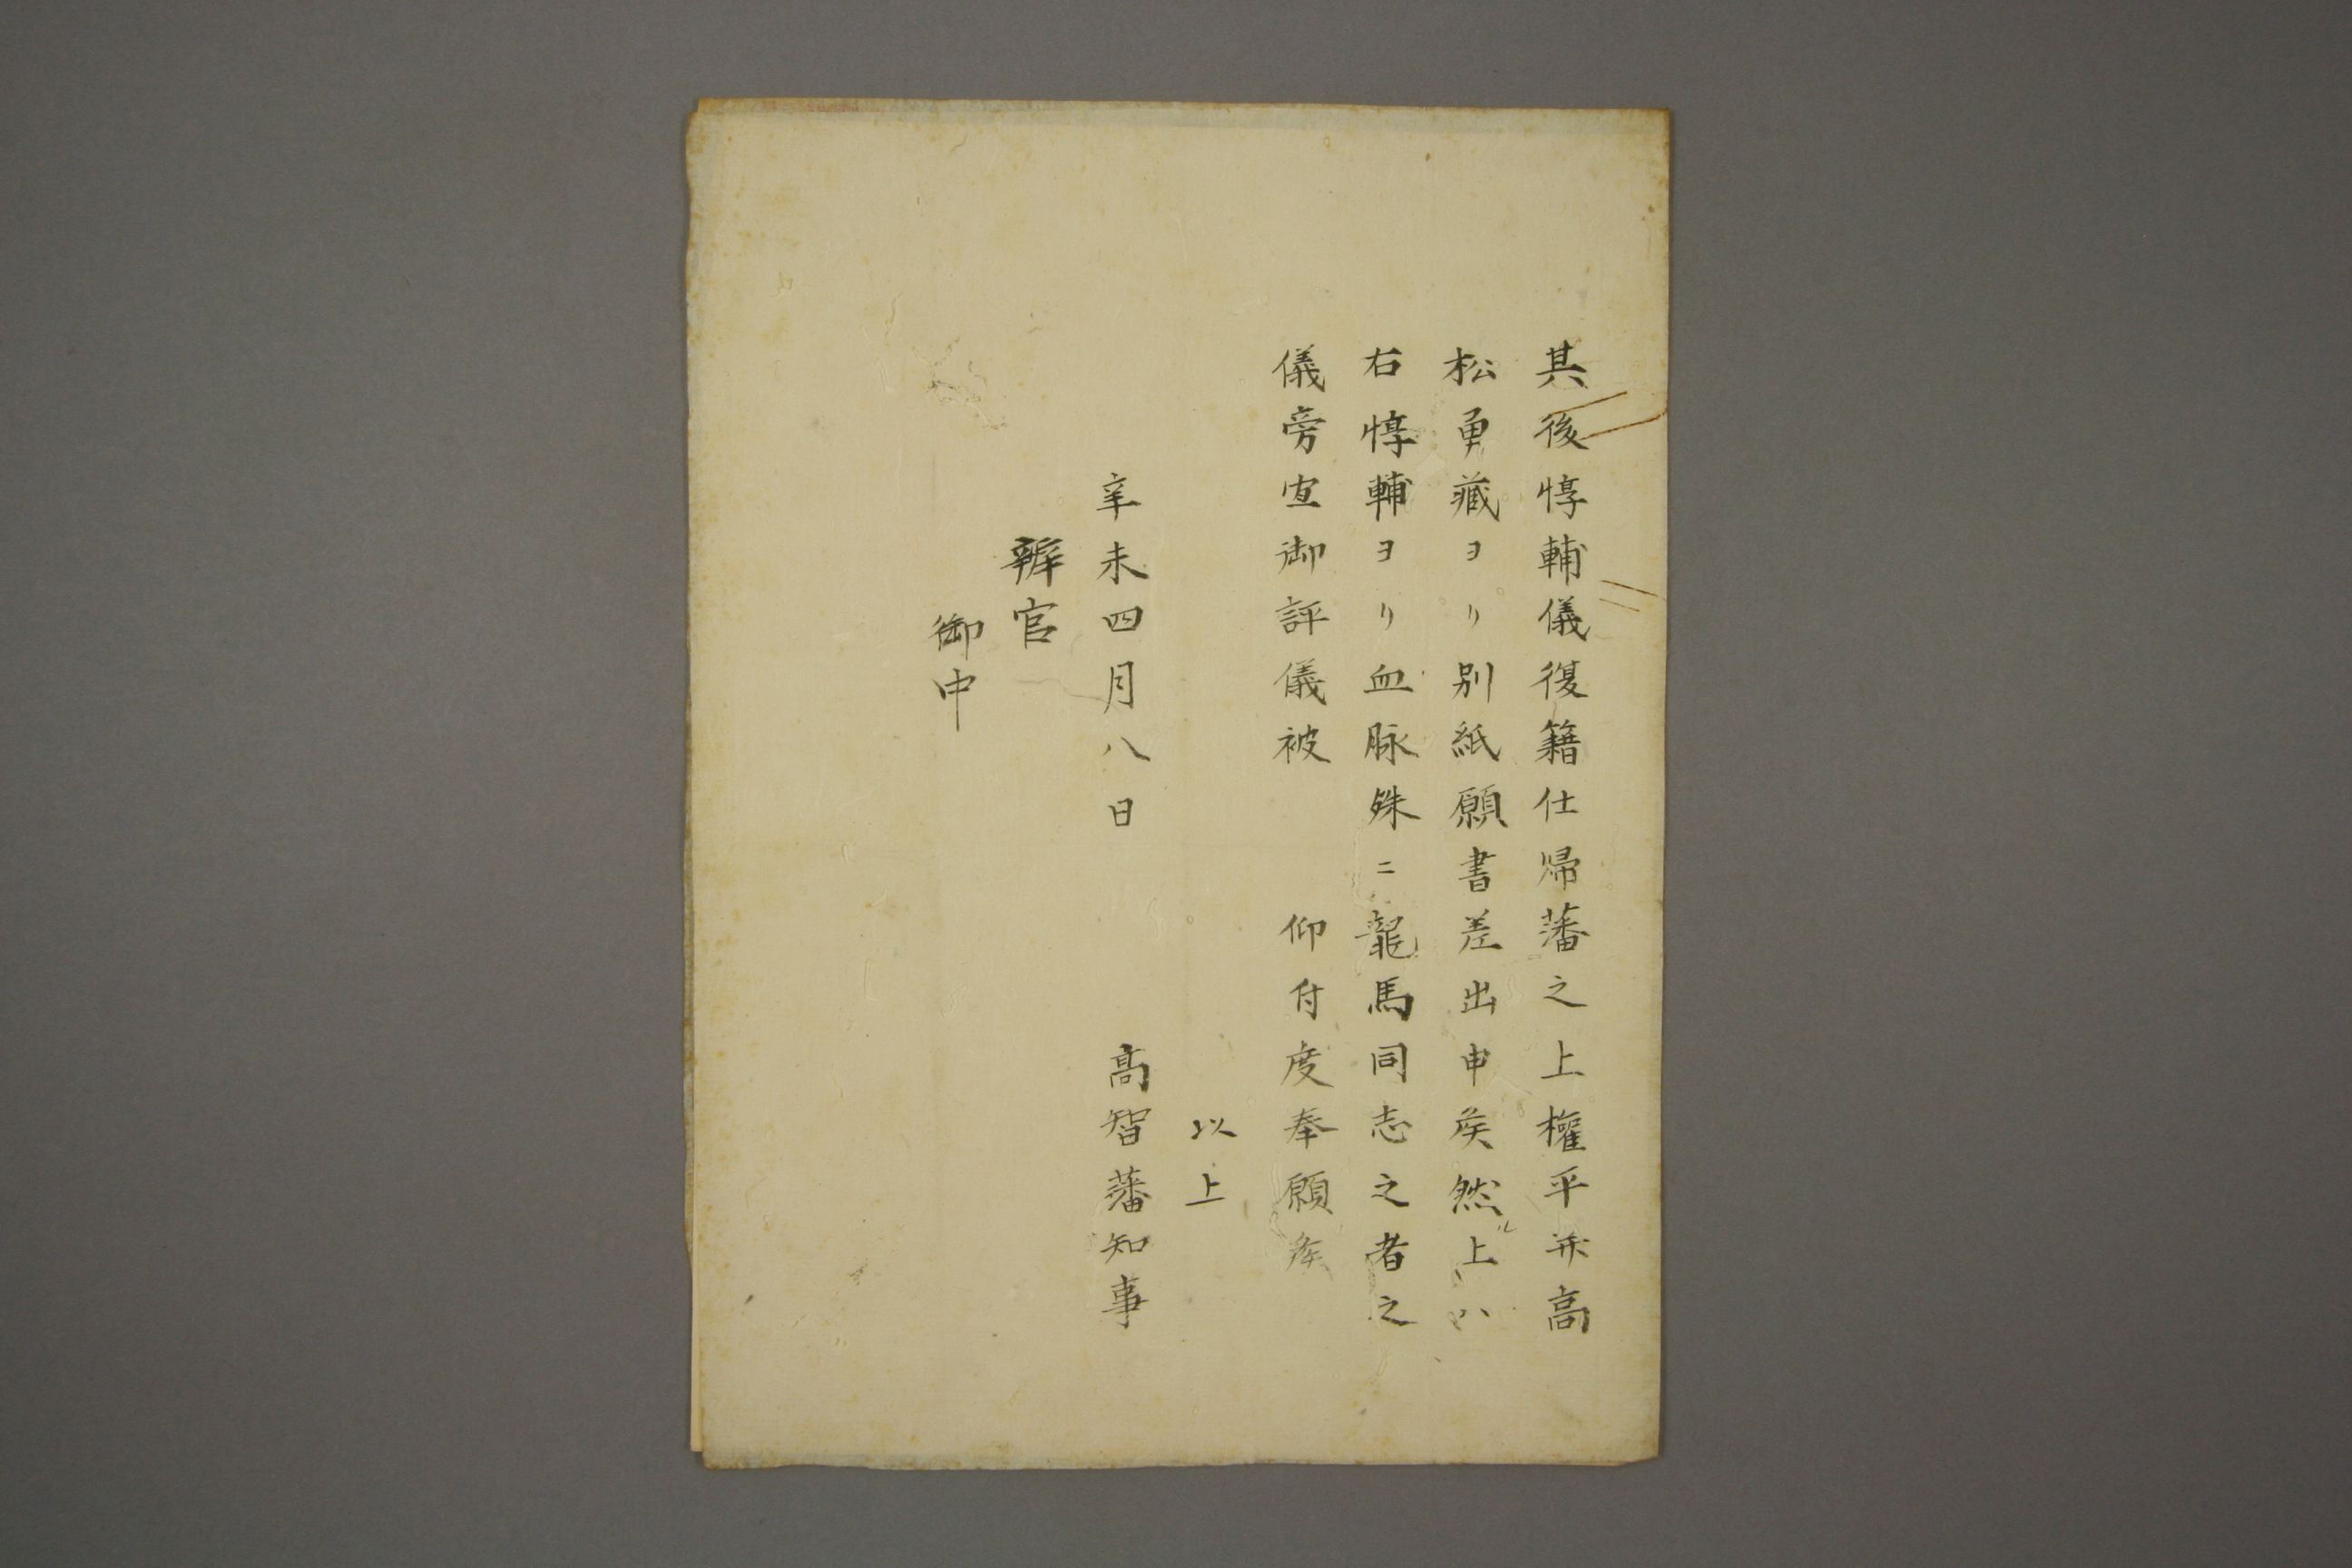 其後惇輔儀復籍仕帰藩之上權平并高
松勇藏ヨリ別紙願書差出申候然ル上ハ
右惇輔ヨリ血脉殊ニ龍馬同志之者之
儀旁宜御評儀被　　仰付度奉願候
以上
辛未四月八日　　　高智藩知事
辨官
御中